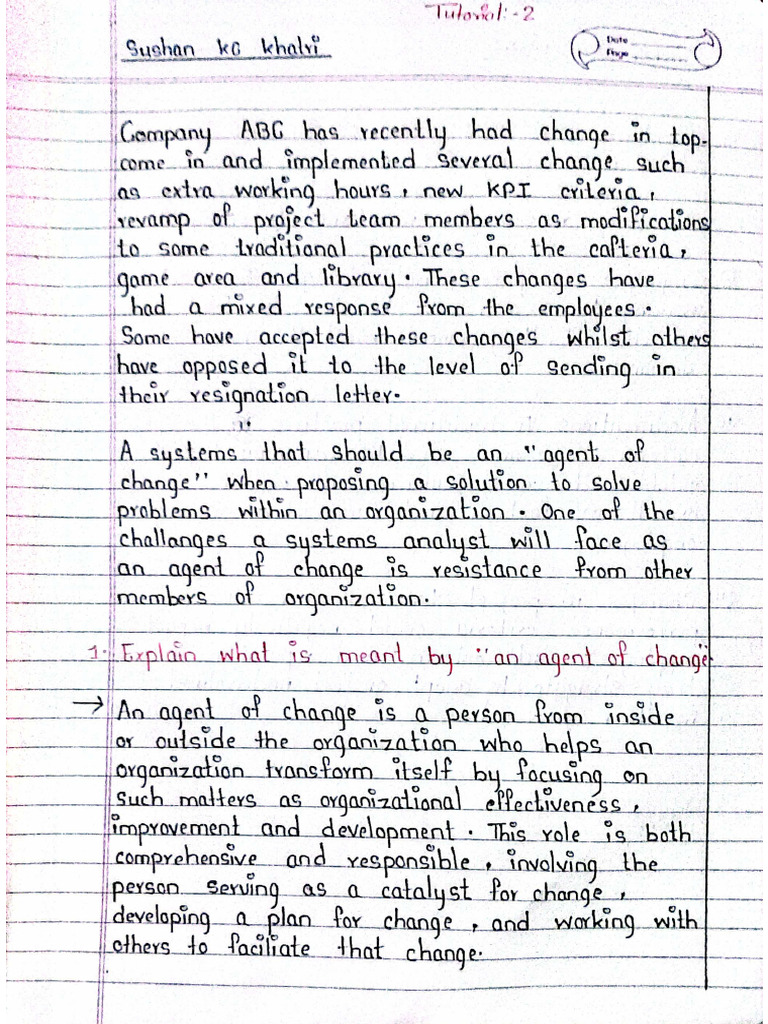 Tutorial:-2
Sushan kc khatri
Date
Page
Company ABC has recently had change in top-
come in and implemented several change such
as extra working hours, new KPI criteria,
revamp of project team members as modifications
to some traditional practices in the cafteria,
game area and library. These changes have
had a mixed response from the employees.
Some have accepted these changes whilst others
have opposed it to the level of sending in
their resignation letter.
A systems that should be an "agent of
change" when proposing a solution to solve
problems within an organization. One of the
challanges a systems analyst will face as
an agent of change is resistance from other
members of organization.
1. Explain what is meant by "an agent of change".
→ An agent of change is a person from inside
or outside the organization who helps an
organization transform itself by focusing on
such matters as organizational effectiveness,
improvement and development. This role is both
comprehensive and responsible, involving the
person serving as a catalyst for change,
developing a plan for change, and working with
others to faciliate that change.